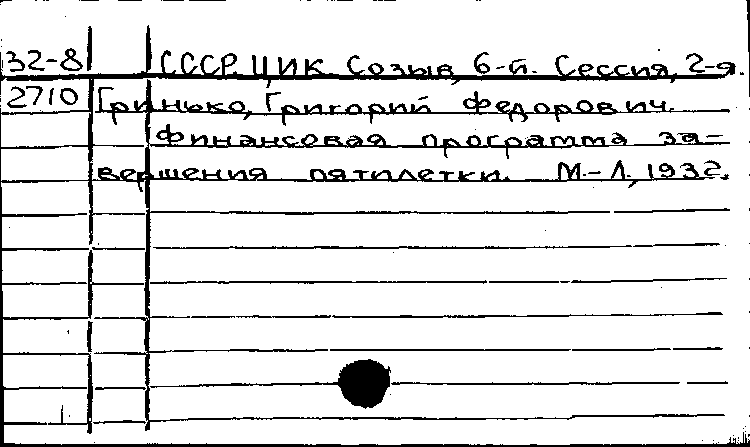 32-8 СССР. ЦИК. Созыв, 6-й. Сессия, 2-я.
2710 Гринько, Григорий Федорович.
Финансовая программа за-
вершения пятилетки. М.-Л., 1932.